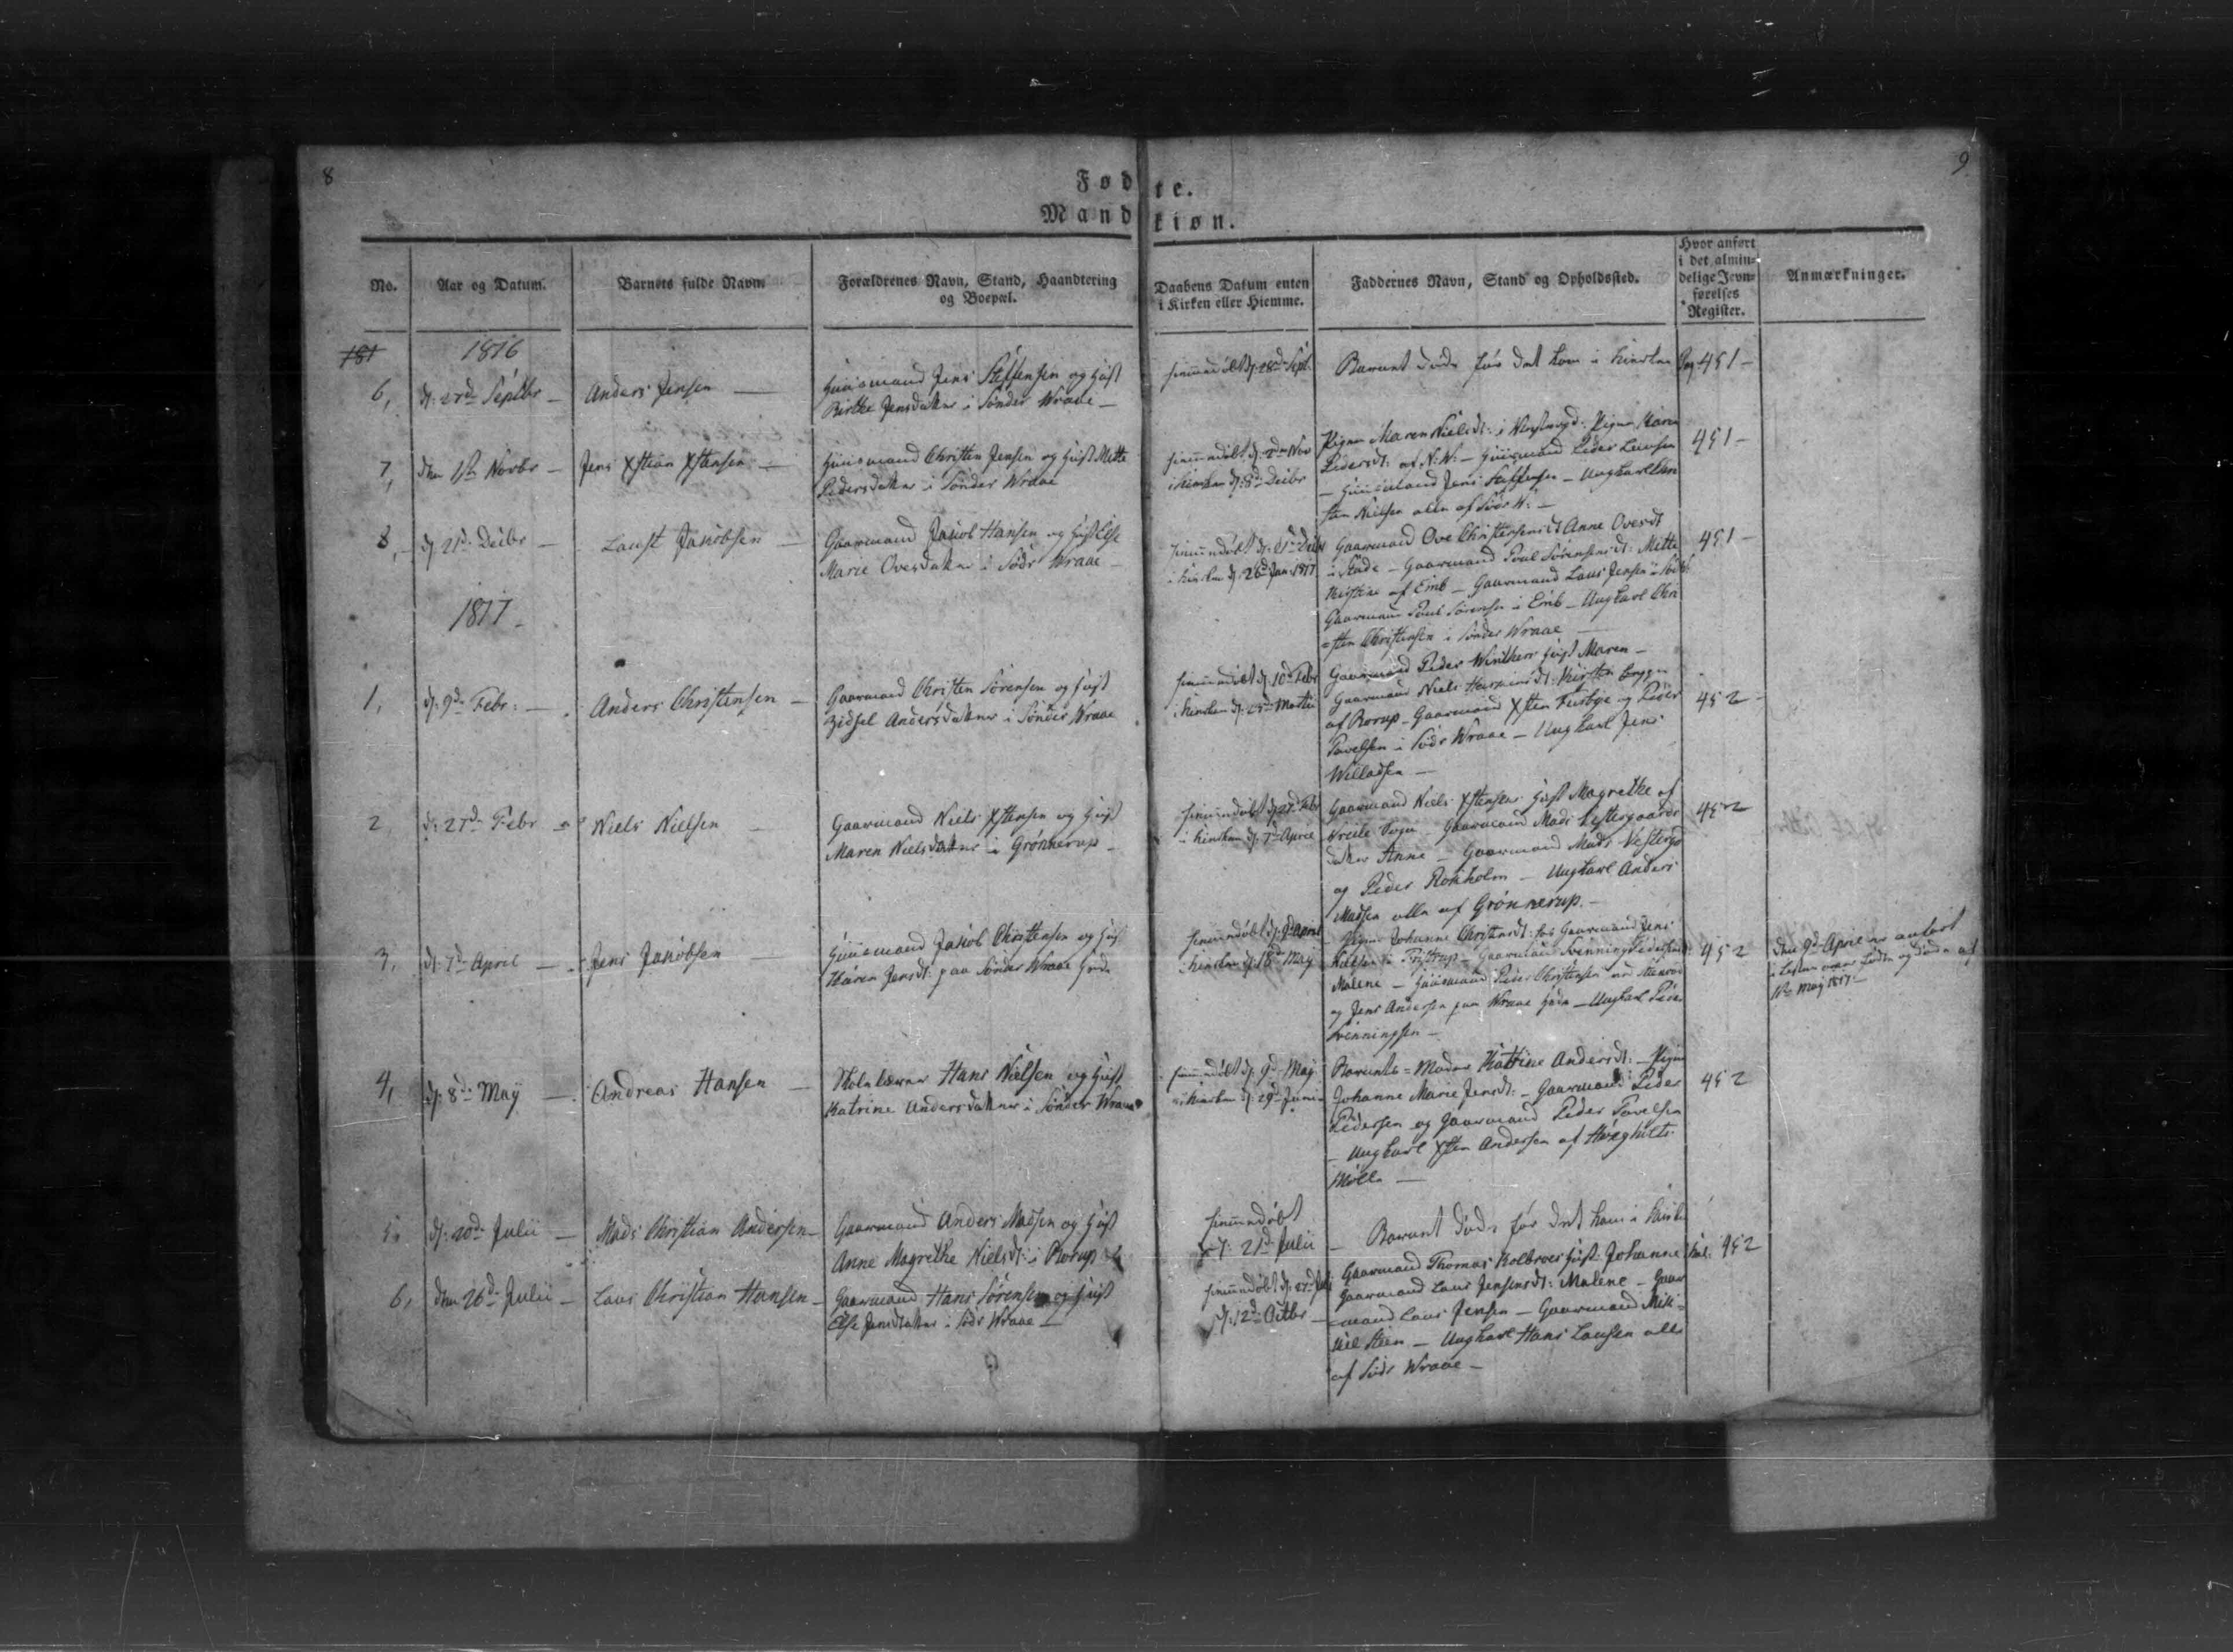 8
9
Fødte.
Mandkiøn.
No.
Aar og Datum.
Barnets fulde Navn
Forældrenes Navn, Stand, Haandtering
og Boepæl.
Daabens Datum enten
i Kirken eller Hiemme.
Faddernes Navn, Stand og Opholdssted.
Hvor anført
i det almin-
delige Jevn-
førelses
Register.
Anmærkninger.
181
1816
6,
d: 23de Septbr —
Anders Jensen —
Huusmand Jens Steffensen og Hust
Birthe Jensdatter i Sønder Wraae —
hiemmedøbt d: 28de Sept.
Barnet døde før det kom i Kirken
Pag 451 —
7,
den 1ste Novbr —
Jens Xstian Xstensen —
Huusmand Christen Jensen og Hust Mette
Pedersdatter i Sønder Wraae
hiemmedøbt d: 2den Nov
i Kirken d: 8de Decbr
Pigen Maren Nielsdt: i Pigen Maren
Pedersdt: af N: W: — Huusmand Peder Lausen
— Huusmand Jens Steffensen — Ungkarl Chri
sten Nielsen alle af Sødr W: —
451 —
8, —
d: 21de Decbr —
Laust Jakobsen —
Gaarmand Jakob Hansen og Hust Else
Marie Ovesdatter i Södr Wraae —
hiemmedøbt d: 21de Decbr
i Kirken d: 26de Jan: 1817
Gaarmand Ove Christensens dt Anne Ovesdt
i Skade — Gaarmand Poul Sørensens dt: Mette
Kirstine af Emb — Gaarmand Laus Jensen i Södr
Gaarmand Poul Sørensen i Emb — Ungkarl Chri
=sten Christensen i Sønder Wraae —
451 —
1817 —
1,
d: 9de Febr: —
Anders Christensen —
Gaarmand Christen Sørensen og Hust
Zidsel Andersdatter i Sønder Wraae
hiemmedøbt d: 10de Febr
i Kirken d: 23de Martii
Gaarmand Peder Winthers Hust Maren —
Gaarmand Niels dt: Kirsten
af Rorup — Gaarmand Xsten Furbye og Peder
Povelsen i Södr Wraae — Ungkarl Jens
Willadsen —
452 —
2,
d: 27de Febr
Niels Nielsen —
Gaarmand Niels Xstensen og Hust
Maren Nielsdatter i Grønnerup —
hiemmedøbt d: 27de Febr
i Kirken d: 7de April
Gaarmand Niels Xstensens Hust Magrethe af
Sogn — Gaarmand Mads Vestergaards
datter Anne — Gaarmand Mads Vestergd
og Peder Rokholm — Ungkarl Anders
Madsen alle af Grønnerup. —
452
3,
d: 7de April —
Jens Jakobsen —
Huusmand Jakob Christensen og Hust
Karen Jensdt: paa Sønder Wraae Hede
hiemmedøbt d: 9de April
i Kirken d: 18de May
Pigen Johanne Christensdt: hos Gaarmand Jens
Nielsen i — Gaarmand Svenning Pedersens dt:
Malene — Huusmand Peder Christensen ved
og Jens Andersen paa Wraae Hede — Ungkarl Peder
Svenningsen —
452
Den 9de April er anført
i Listen over fødte og døde af
1ste May 1817 —
4,
d: 8de May —
Andreas Hansen —
Skolelærer Hans Nielsen og Hust
Katrine Andersdatter i Sønder Wraae
hiemmedøbt d: 9de May
i Kirken d: 29de Junii
Barnets = Moder Katrine Andersdt: — Pigen
Johanne Marie Jensdt: — Gaarmand Peder
Pedersen og Gaarmand Peder Povelsen
— Ungkarl Xsten Andersen af Høgholts
Mølle —
452
5,
d: 20de Julii —
Mads Christian Andersen —
Gaarmand Anders Madsen og Hust
Anne Magrethe Nielsdt: i Rorup
hiemmedøbt
d: 21de Julii
— Barnet døde før det kom i Kirke
6,
den 26de Julii —
Laus Christian Hansen —
Gaarmand Hans Sørensen og Hust
Else Jensdatter i Södr Wraae —
hiemmedøbt d: 27de Juli
d: 12de Octbr —
Gaarmand Thomas Kolbroes Hust: Johanne
Gaarmand Laus Jensens dt: Malene — Gaar
=mand Laus Jensen — Gaarmand Mik=
kel Steen — Ungkarl Hans Lausen alle
af Södr Wraae —
452